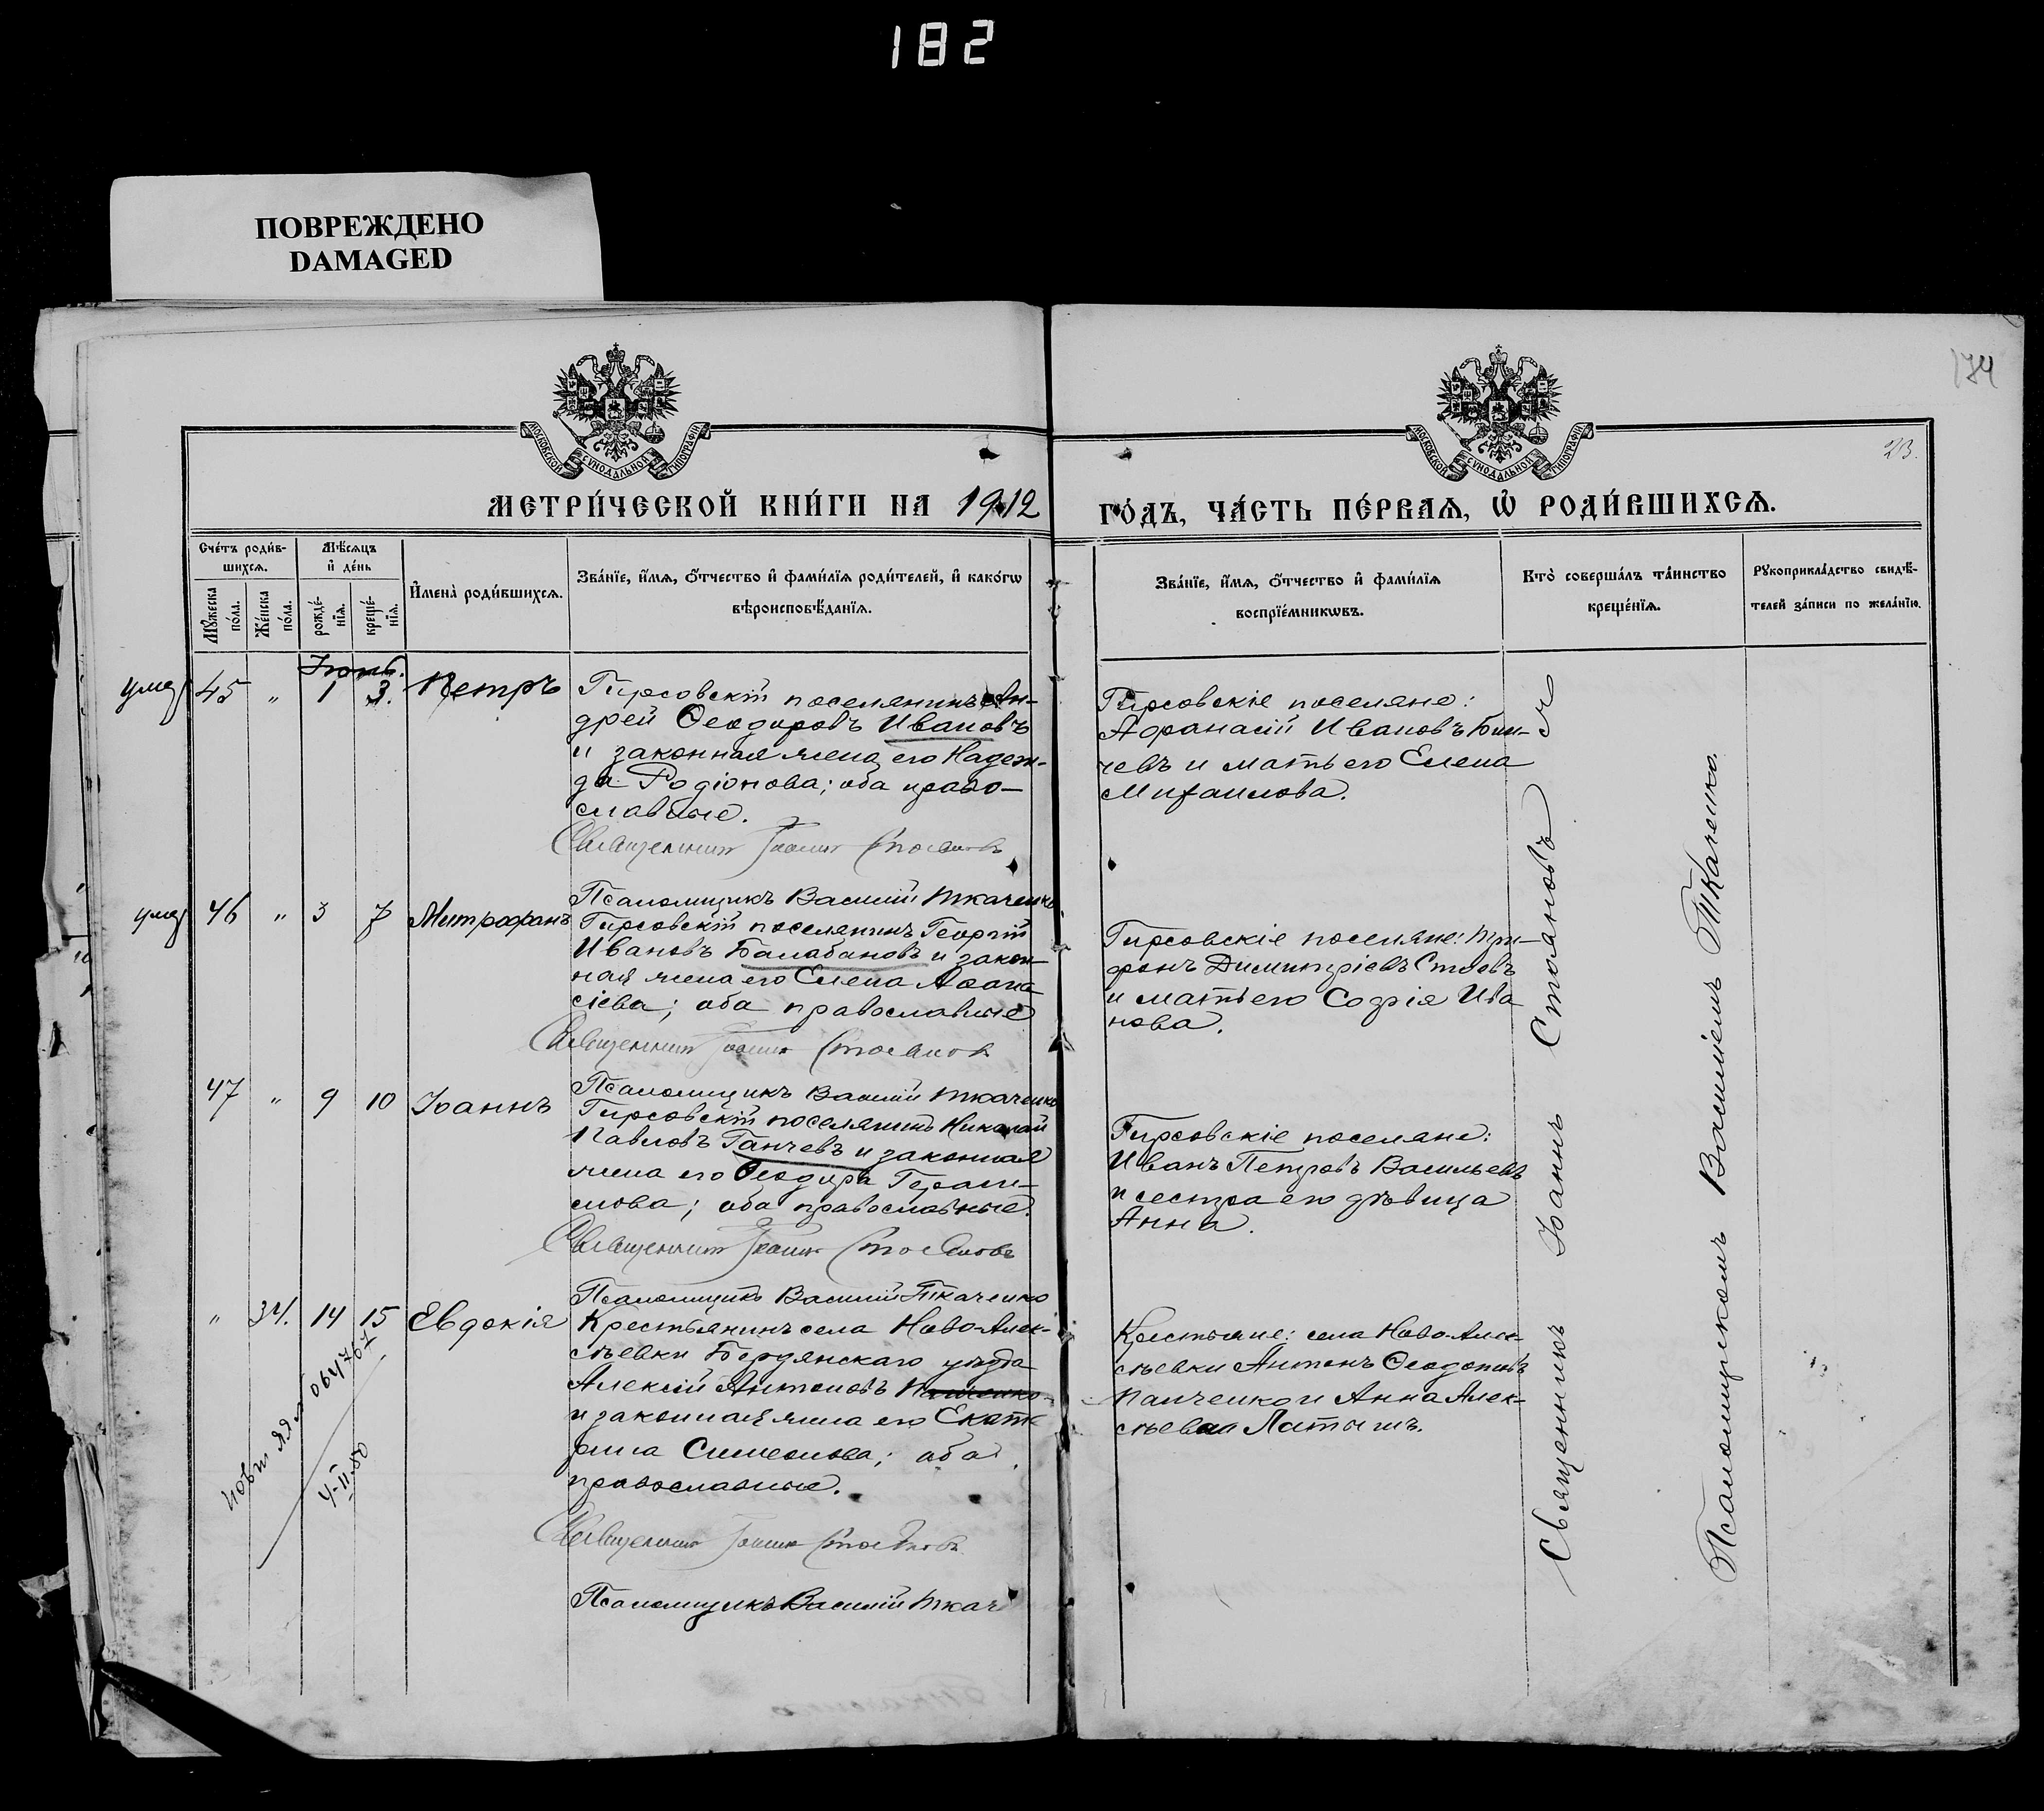 182
ПОВРЕЖДЕНО
DAMAGED
174
23.
МОСКОВСКОЙ СѴНОДАЛЬНОЙ ТИПОГРАФІИ
МОСКОВСКОЙ СѴНОДАЛЬНОЙ ТИПОГРАФІИ
МЕТРИ́ЧЕСКОЙ КНИ́ГИ НА 1912
ГО́ДЪ, ЧА́СТЬ ПЕ́РВАѦ, Ѡ҆ РОДИ́ВШИХСѦ.
Сче́тъ роди́в-
шихсѧ.
Мꙋ́жеска
по́ла.
Же́нска
по́ла.
Мѣ́сѧцъ
и҆ де́нь
рожде́-
нїѧ.
креще́-
нїѧ.
И҆мена̀ роди́вшихсѧ.
Зва́нїе, и҆́мѧ, ѻ҆́тчество и҆ фами́лїѧ роди́телей, и҆ како́гѡ
вѣроисповѣ́данїѧ.
Зва́нїе, и҆́мѧ, ѻ҆́тчество и҆ фами́лїѧ
воспрїе́мникѡвъ.
Кто̀ соверша́лъ та́инство
креще́нїѧ.
Рꙋкоприкла́дство свидѣ́-
телей за́писи по жела́нїю.
Іюнь.
умер 45 " 1 3. Петръ
Гирсовскій поселянинъ Ан-
дрей Ѳеодоровъ Ивановъ
и законная жена его Надеж-
да Родіонова; оба право-
славные.
Священникъ Іоаннъ Стояновъ
Псаломщикъ Василій Ткаченко
Гирсовскіе поселяне:
Афанасій Ивановъ Бин-
чевъ и мать его Елена
Михаилова.
умер 46 " 3 7 Митрофанъ
Гирсовскій поселянинъ Георгій
Ивановъ Балабановъ и закон-
ная жена его Елена Аѳана
сіева; оба православные
Священникъ Іоаннъ Стояновъ
Псаломщикъ Василій Ткаченко
Гирсовскіе поселяне: Три-
фонъ Димитріевъ Стоевъ
и мать его Софія Ива
нова.
47 " 9 10 Іоаннъ
Гирсовскій поселянинъ Николай
Павловъ Ганчевъ и законная
жена его Ѳеодора Гераси-
мова; оба православные.
Священникъ Іоаннъ Стояновъ
Псаломщикъ Василій Ткаченко
Гирсовскіе поселяне:
Иванъ Петровъ Васильевъ
и сестра его дѣвица
Анна.
" 34. 14 15 Евдокія
Крестьянинъ села Ново-Алек-
сѣевки Бердянскаго уѣзда
Алексій Антоновъ Панченко
и законная жена его Екате
рина Симеонова; оба
православные.
Священникъ Іоаннъ Стояновъ
Псаломщикъ Василій Ткач
Крестьяне: села Ново-Алек-
сѣевки Антонъ Ѳеодотовъ
Панченко и Анна Алек-
сѣева Латышъ.
064767
4-II-50
Священникъ Іоаннъ Стояновъ
Псаломщикомъ Василіемъ Ткаченко